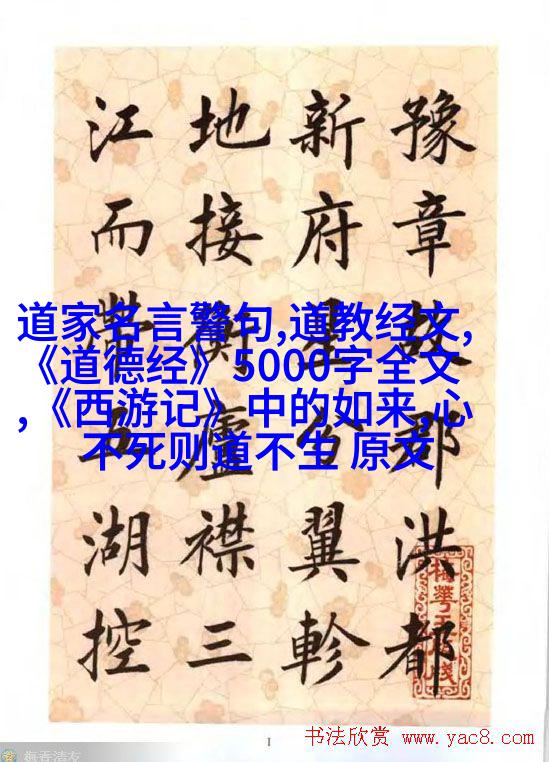 豫章故郡洪都
新府星分翼軫
地接衡廬襟三
江而帶五湖控
道家名言警句,道教经文,
《道德经》5000字全文
,《西游记》中的如来,心
不死则道不生 原文
1
书法欣赏 www.yac8.com
梅香清友